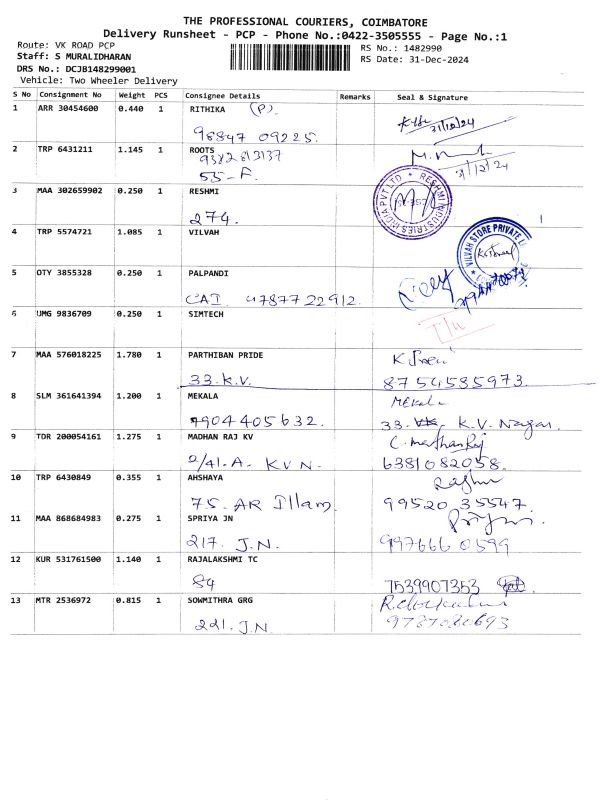 THE PROFESSIONAL COURIERS, COIMBATORE
Delivery Runsheet - PCP - Phone No.:0422-3505555 - Page No.:1
Route: VK ROAD PCP
RS No.: 1482990
Staff: S MURALIDHARAN
RS Date: 31-Dec-2024
DRS No.: DCJB148299001
Vehicle: Two Wheeler Delivery
S No Consignment No Weight PCS Consignee Details Remarks Seal & Signature
1 ARR 30454600 0.440 1 RITHIKA (P)
31/12/24
98847 09225.
2 TRP 6431211 1.145 1 ROOTS
55-F.
3 MAA 302659902 0.250 1 RESHMI
RESHMI INDUSTRIES INDIA PVT LTD
274.
4 TRP 5574721 1.085 1 VILVAH
VILVAH STORE PRIVATE
5 OTY 3855328 0.250 1 PALPANDI
6 UMG 9836709 0.250 1 SIMTECH
7 MAA 576018225 1.780 1 PARTHIBAN PRIDE
33. K.V. 8754535973
8 SLM 361641394 1.200 1 MEKALA Mekala
7904405632. 33. K.V. Nagar.
9 TDR 200054161 1.275 1 MADHAN RAJ KV
2/41-A. KVN. 6381082058.
10 TRP 6430849 0.355 1 AHSHAYA
75. AR Illam. 99520 35547.
11 MAA 868684983 0.275 1 SPRIYA JN
217. J.N. 997666 0599
12 KUR 531761500 1.140 1 RAJALAKSHMI TC
84 7539907353
13 MTR 2536972 0.815 1 SOWMITHRA GRG
221. J.N.